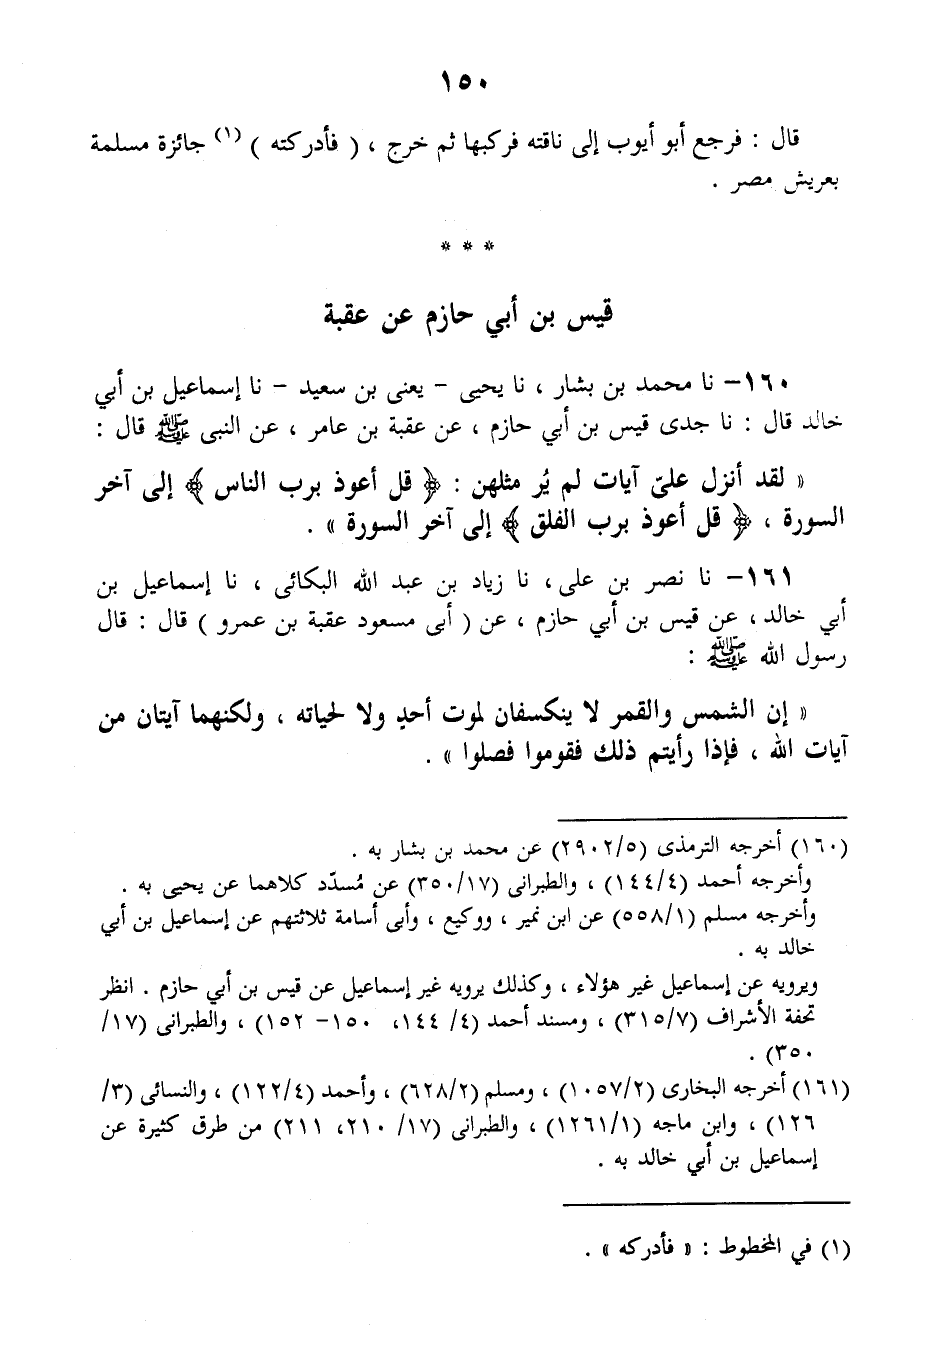 ١٥٠
قال : فرجع أبو أيوب إلى ناقته فركبها ثم خرج ، ( فأدركته ) (١) جائزة مسلمة
بعريش مصر .
* * *
قيس بن أبي حازم عن عقبة
١٦٠– نا محمد بن بشار ، نا يحيى – يعنى بن سعيد – نا إسماعيل بن أبي
خالد قال : نا جدى قيس بن أبي حازم ، عن عقبة بن عامر ، عن النبى ﷺ قال :
« لقد أنزل علىّ آيات لم يُر مثلهن : ﴿ قل أعوذ برب الناس ﴾ إلى آخر
السورة ، ﴿ قل أعوذ برب الفلق ﴾ إلى آخر السورة » .
١٦١– نا نصر بن على، نا زياد بن عبد الله البكائى ، نا إسماعيل بن
أبي خالد، عن قيس بن أبي حازم ، عن ( أبى مسعود عقبة بن عمرو ) قال : قال
رسول الله ﷺ :
« إن الشمس والقمر لا ينكسفان لموت أحدٍ ولا لحياته ، ولكنهما آيتان من
آيات الله ، فإذا رأيتم ذلك فقوموا فصلوا » .
(١٦٠) أخرجه الترمذى (٢٩٠٢/٥) عن محمد بن بشار به .
وأخرجه أحمد (١٤٤/٤) ، والطبرانى (٣٥٠/١٧) عن مُسدّد كلاهما عن يحيى به .
وأخرجه مسلم (٥٥٨/١) عن ابن نمير ، ووكيع ، وأبى أسامة ثلاثتهم عن إسماعيل بن أبي
خالد به .
ويرويه عن إسماعيل غير هؤلاء ، وكذلك يرويه غير إسماعيل عن قيس بن أبي حازم . انظر
تحفة الأشراف (٣١٥/٧) ، ومسند أحمد (٤/ ١٤٤، ١٥٠– ١٥٢) ، والطبرانى (١٧/
٣٥٠) .
(١٦١) أخرجه البخارى (١٠٥٧/٢) ، ومسلم (٦٢٨/٢) ، وأحمد (١٢٢/٤) ، والنسائى (٣/
١٢٦) ، وابن ماجه (١٢٦١/١) ، والطبرانى (١٧/ ٢١٠، ٢١١) من طرق كثيرة عن
إسماعيل بن أبي خالد به .
(١) في المخطوط : « فأدركه » .